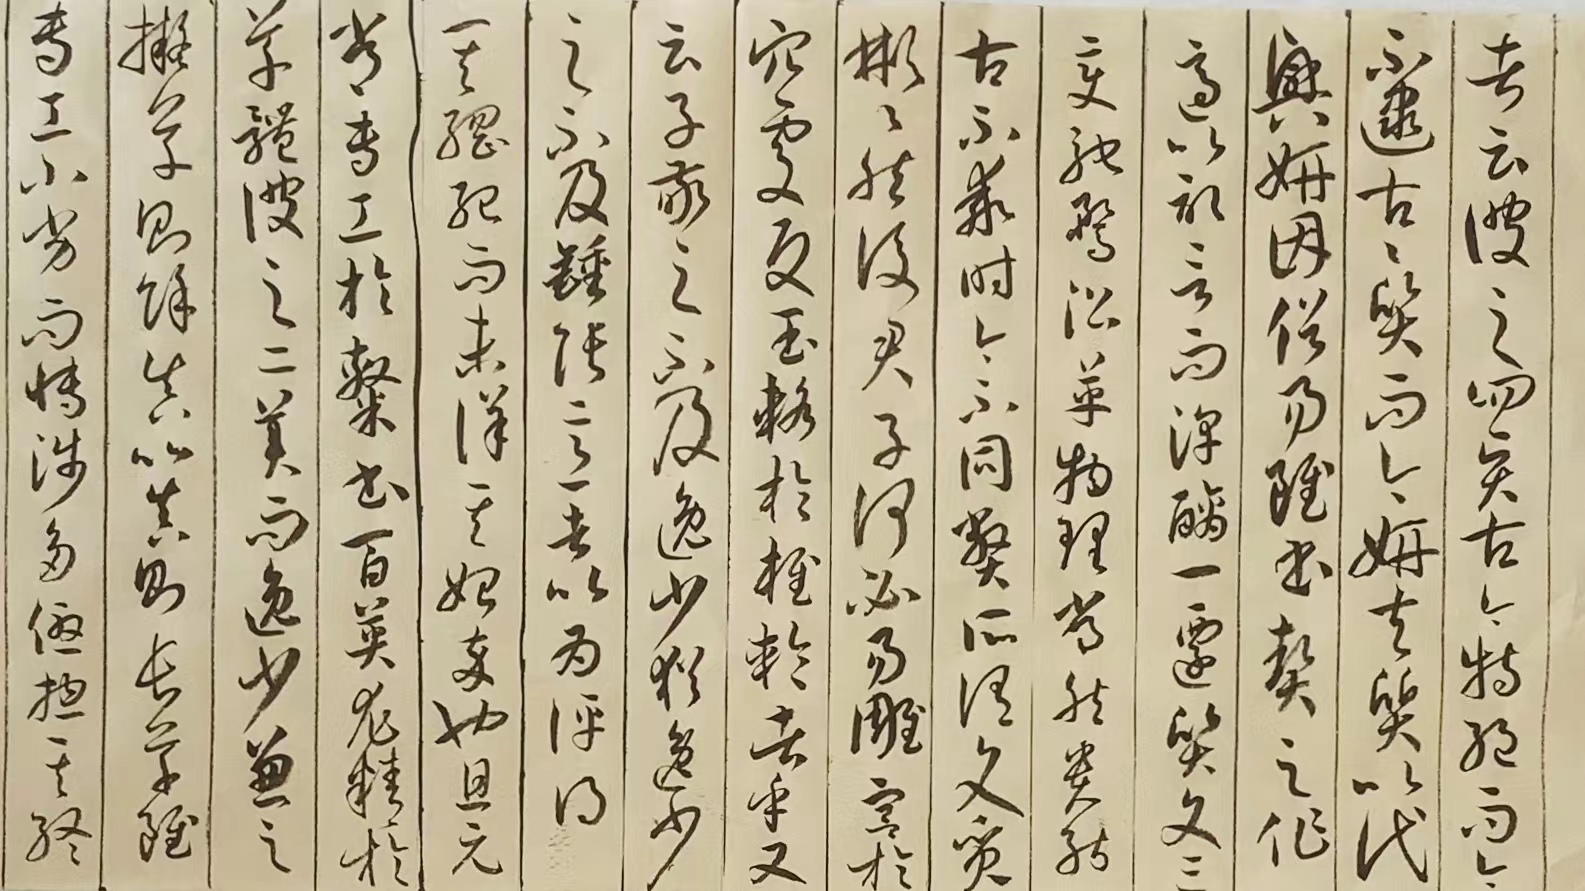 者云彼之四賢古今特絕而今
不逮古々質而今妍夫質以代
興妍因俗易雖書契之作
適以記言而淳醨一遷質文三
變馳騖沿革物理常然貴能
古不乖時今不同弊所謂文質
彬々然後君子何必易雕宮於
穴處反玉輅於椎輪者乎又
云子敬之不及逸少猶逸少
之不及鍾張意者以為評得
其綱紀而未詳其始卒也且元
常專工於隸書百英尤精於
草體彼之二美而逸少兼之
擬草則餘真比真則長草雖
專工小劣而博涉多優揔其終